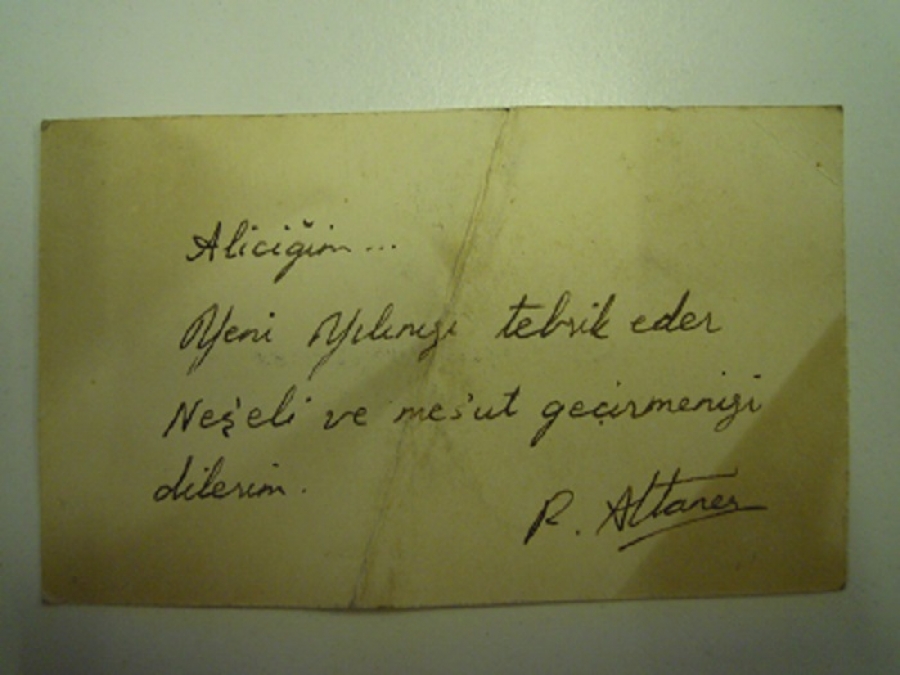 Aliciğim...
Yeni Yılınızı tebrik eder
Neş'eli ve mes'ut geçirmenizi
dilerim.
R. Altaner